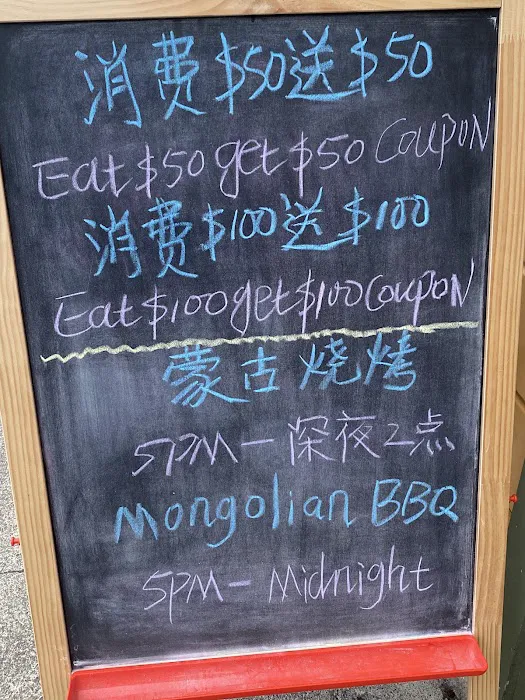 消费$50送$50
Eat $50 get $50 COUPON
消费$100送$100
Eat $100 get $100 COUPON
蒙古烧烤
5PM—深夜2点
Mongolian BBQ
5PM—Midnight